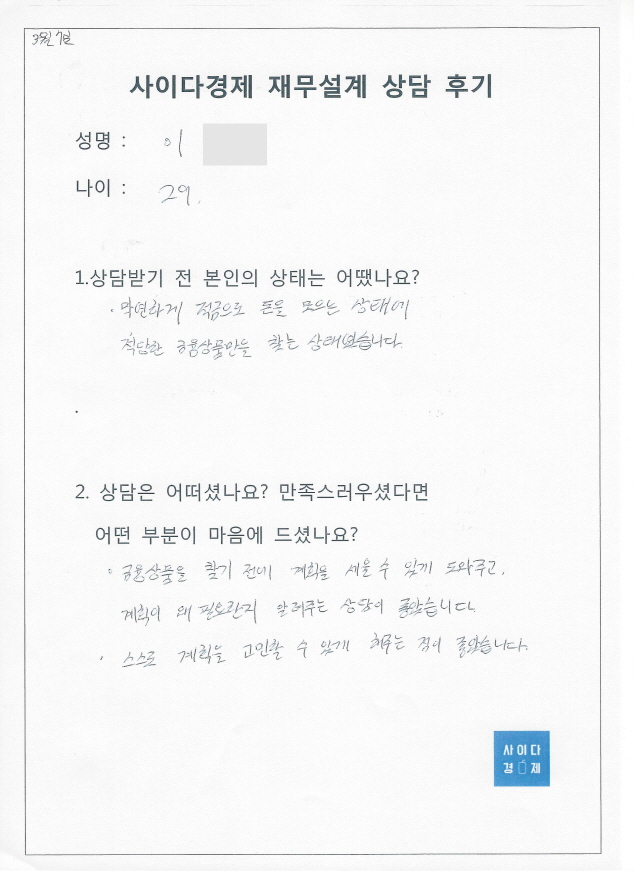 3월 7일
사이다경제 재무설계 상담 후기
성명 : 이
나이 : 29.
1.상담받기 전 본인의 상태는 어땠나요?
· 막연하게 적금으로 돈을 모으는 상태에
적당한 금융상품만을 찾는 상태였습니다.
2. 상담은 어떠셨나요? 만족스러우셨다면
어떤 부분이 마음에 드셨나요?
· 금융상품을 찾기 전에 계획을 세울 수 있게 도와주고,
계획이 왜 필요한지 알려주는 상담이 좋았습니다.
· 스스로 계획을 고민할 수 있게 해주는 점이 좋았습니다.
사이다
경제